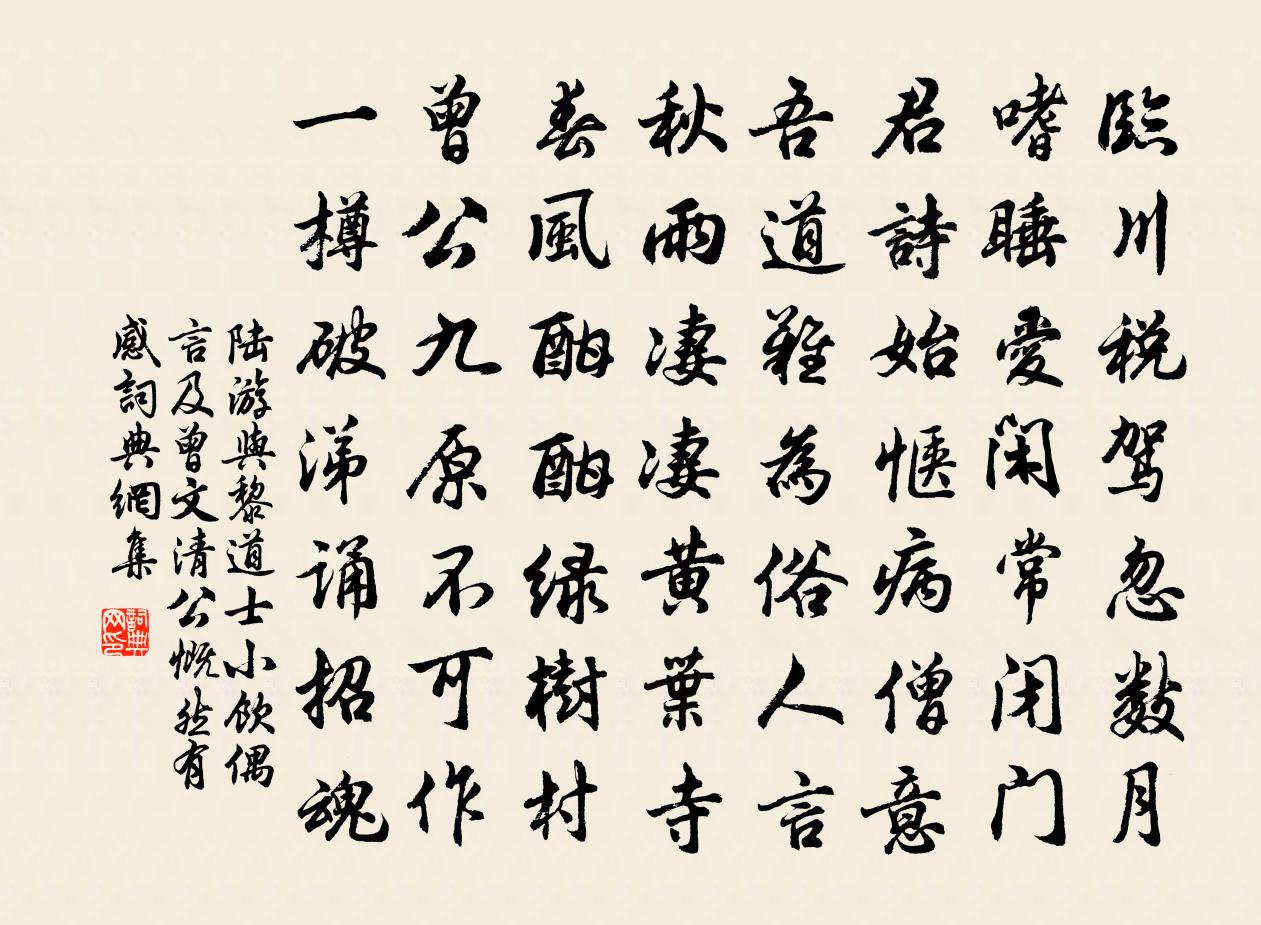 臨川税駕忽數月
嗜睡愛閑常闭門
君詩始愜病僧意
吾道難為俗人言
秋雨凄凄黄葉寺
春風酣酣緑樹村
曾公九原不可作
一樽破涕誦招魂
陆游與黎道士小飲偶
言及曾文清公慨然有
感詞典網集
詞典网印